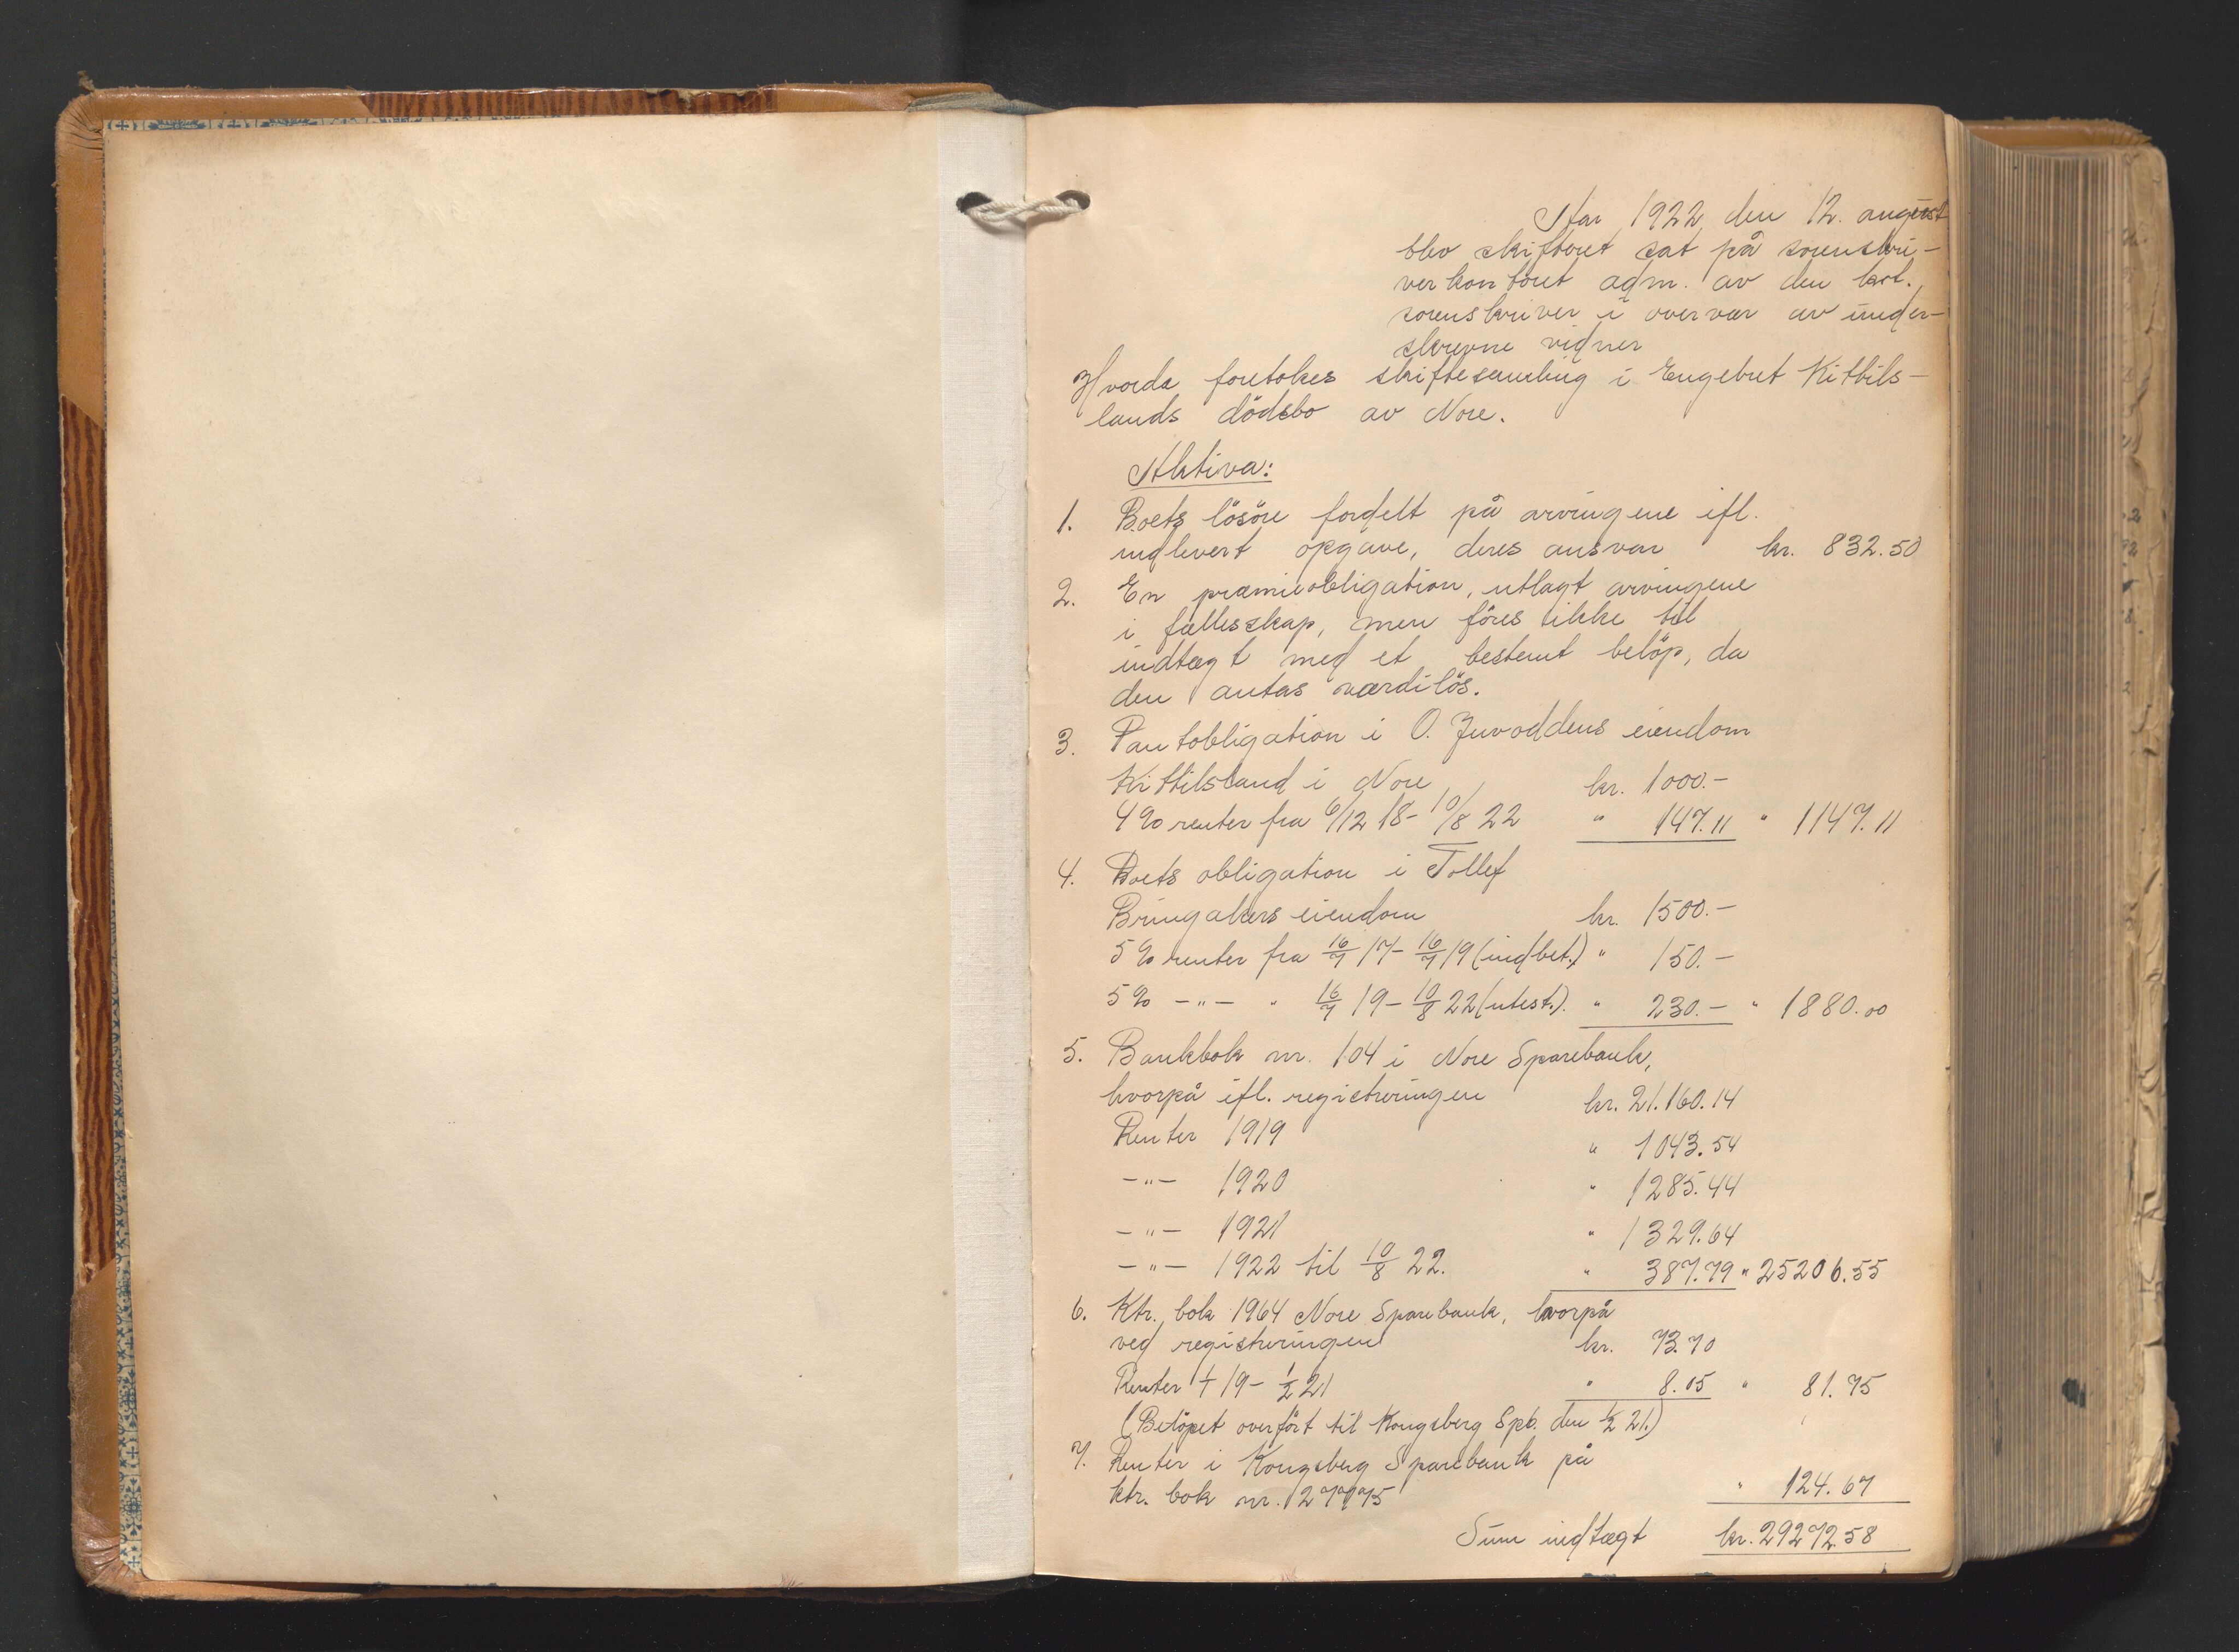 Aar 1922 den 12. august
blev skifteret sat på sorenskri-
verkontoret adm. av den kst.
sorenskriver i overvær av under-
skrevne vidner
Hvorda foretokes skiftesamling i Engebret Kittils-
lands dödsbo av Nore.
Aktiva:
1. Boets lösöre fordelt på arvingene ifl.
indlevert opgave, deres ansvar kr. 832.50
2. En præmieobligation, utlagt arvingene
i fællesskap, men föres ikke til
indtægt med et bestemt belöp, da
den antas værdilös.
3. Pantobligation i O. Juvoddens eiendom
Kittilsland i Nore kr. 1000.-
4% renter fra 6/12 18- 10/8 22 " 147.11 " 1147.11
4. Boets obligation i Tollef
Bringakers eiendom kr. 1500.-
5% renter fra 16/7 17- 16/7 19 (indbet.) " 150.-
5% -"- " 16/7 19- 10/8 22 (utest.). " 230.- " 1880.00
5. Bankbok nr. 104 i Nore Sparebank,
hvorpå ifl. registreringen kr. 21.160.14
Renter 1919 " 1043.54
-"- 1920 " 1285.44
-"- 1921 " 1329.64
-"- 1922 til 10/8 22. " 387.79 " 25206.55
6. Ktr. bok 1964 Nore Sparebank, hvorpå
ved registreringen kr. 73.70
Renter 1/1 19- 1/2 21 " 8.05 " 81.75
(Belöpet overfört til Kongsberg Spb. den 1/2 21.)
7. Renter i Kongsberg Sparebank på
ktr. bok nr. 27775 " 124.67
Sum indtægt kr. 29272.58